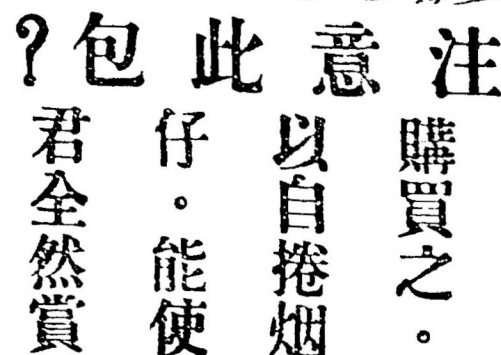 注意此包?
購買之。
以自捲烟
仔。能使
君全然賞